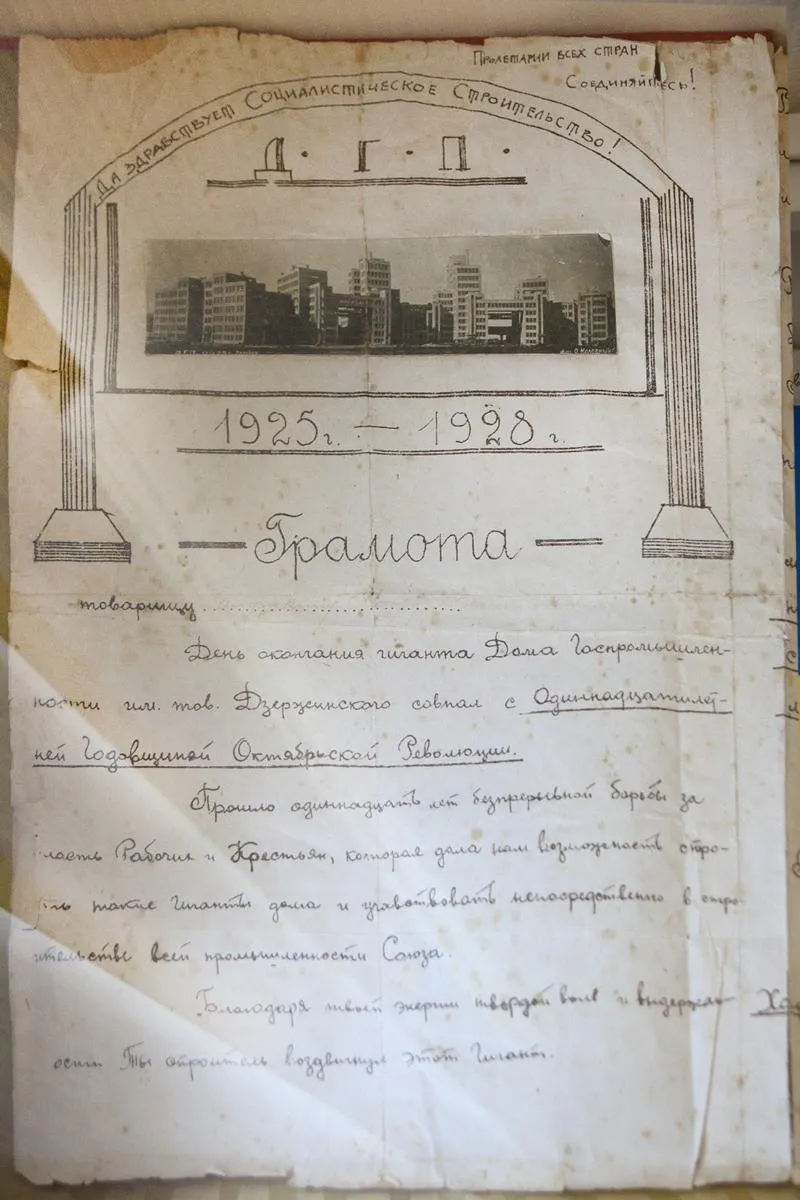 Пролетарии всех стран
Соединяйтесь!
Да здравствует Социалистическое Строительство!
Д. Г. П.
1925г. — 1928 г.
— Грамота —
товарищу ................................
День окончания гиганта Дома Госпромышлен-
ности им. тов. Дзержинского совпал с Одиннадцатилет-
ней Годовщиной Октябрьской Революции.
Прошло одиннадцать лет безпрерывной борьбы за
власть Рабочих и Крестьян, которая дала нам возможность стро-
ить такие Гиганты дома и учавствовать непосредственно в стро-
ительстве всей промышленности Союза.
Благодаря твоей энергии твердой воле и выдержан-
ости Ты строитель воздвигнул этот Гигант.